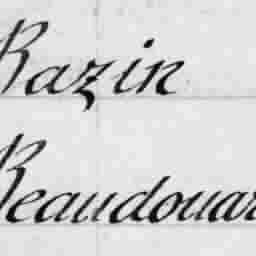 Bazin
Beaudouar